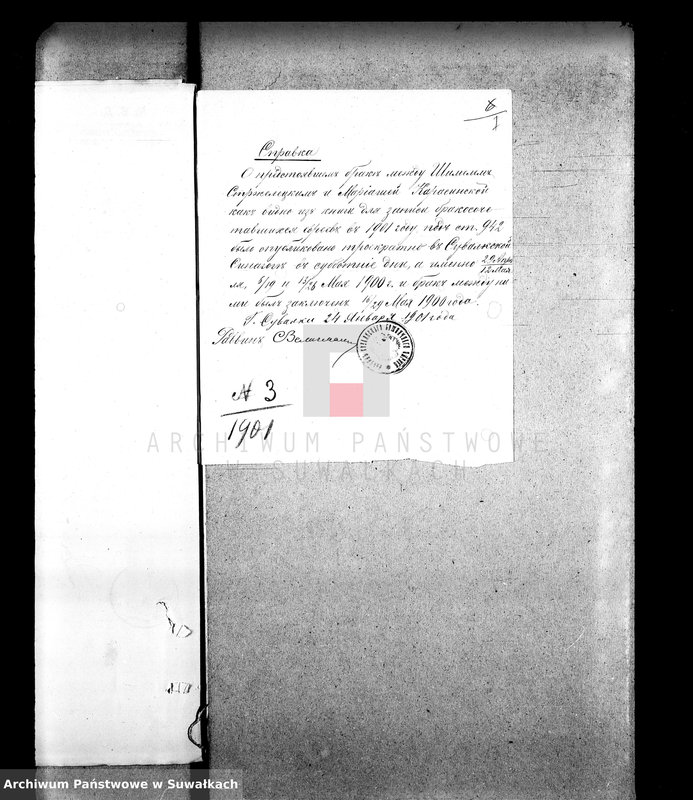 6
1
Справка
О предстоявшемъ бракѣ между Шмилемъ
Стржелецкимъ и Маріашей
какъ видно изъ книги для записи бракосоче-
тавшихся евреевъ въ 1901 году подъ ст. 942
было опубликовано троекратно въ Сувалкской
Синагогѣ въ субботніе дни, а именно 29 Апрѣ
12 Мая
ля, 6/19 и 13/26 Мая 1900 г. и бракъ между ни-
ми былъ заключенъ 16/29 Мая 1900 года.
Г. Сувалки 24 Января 1901 года
Раввинъ
N 3
1901
ARCHIWUM PAŃSTWOWE
W SUWAŁKACH
Archiwum Państwowe w Suwałkach